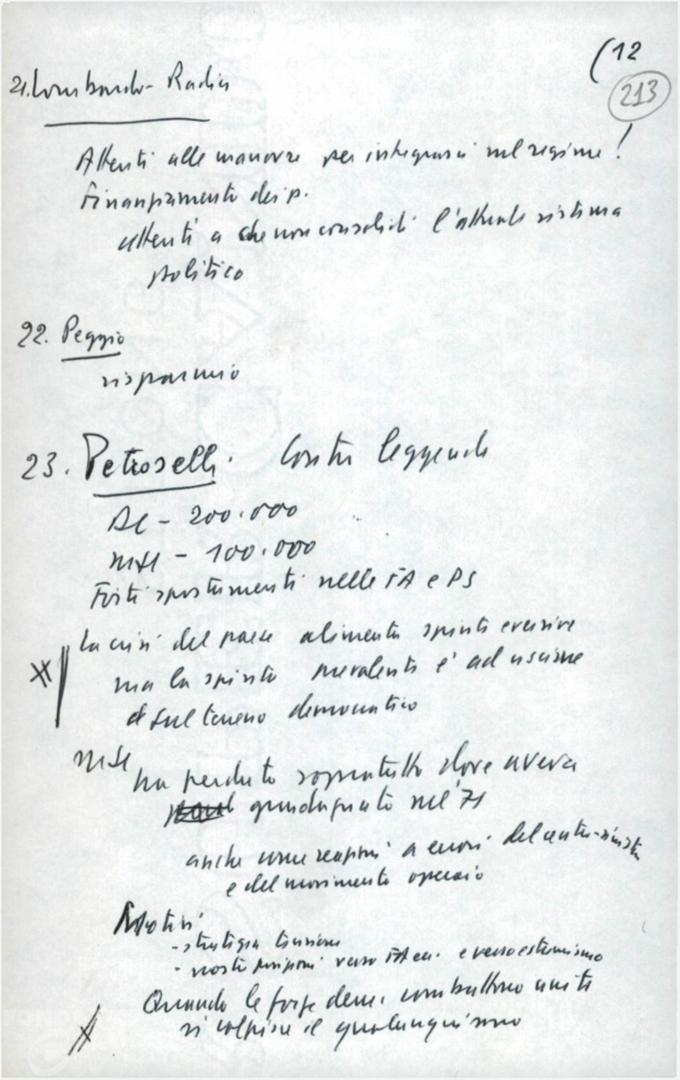 (12
213
21. Lombardo-Radice
Attenti alle manovre per integrarci nel regime!
Finanziamento dei p.
attenti a che non consolidi l'attuale sistema
politico
22. Peggio
risparmio
23. Petroselli. Contri leggende
DC - 200.000
MSI - 100.000
Forti spostamenti nelle FA e PS
La crisi del paese alimenta spinte eversive
ma la spinta prevalente è ad uscirne
sul terreno democratico
MSI ha perduto soprattutto dove aveva
guadagnato nel '71
anche come reazioni a errori del centro-sinistra
e del movimento operaio
Motivi
- strategia tensione
- nostre posizioni verso FA e verso estremismo
Quando le forze dem. combattono unite
si colpisce il qualunquismo